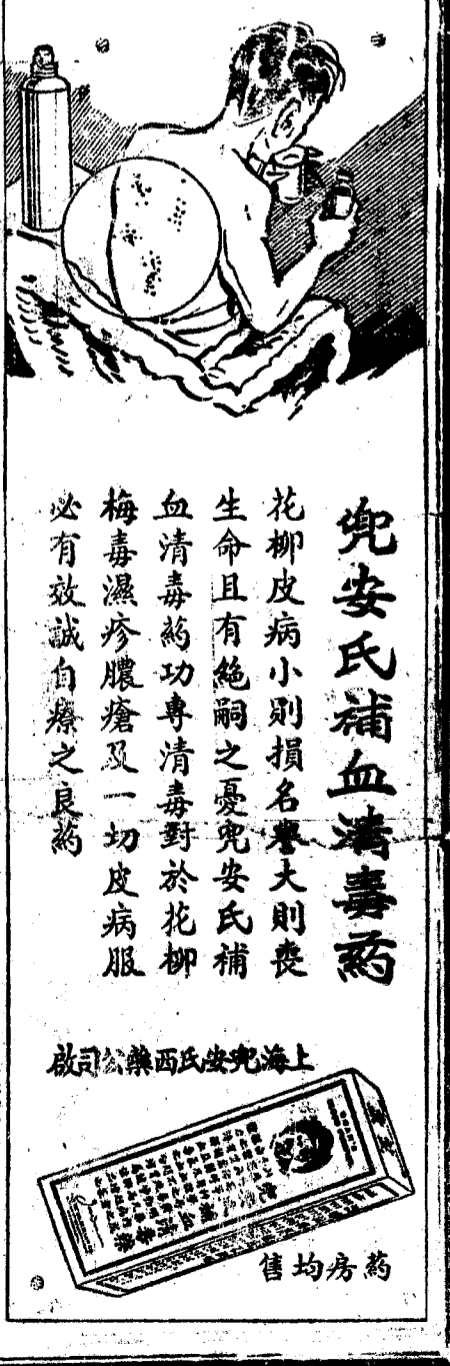 兜安氏補血清毒葯
花柳皮病小則損名譽大則喪
生命且有絕嗣之憂兜安氏補
血清毒葯功專清毒對於花柳
梅毒濕疹膿瘡及一切皮病服
必有效誠自療之良葯
上海兜安氏西藥公司啟
葯房均售